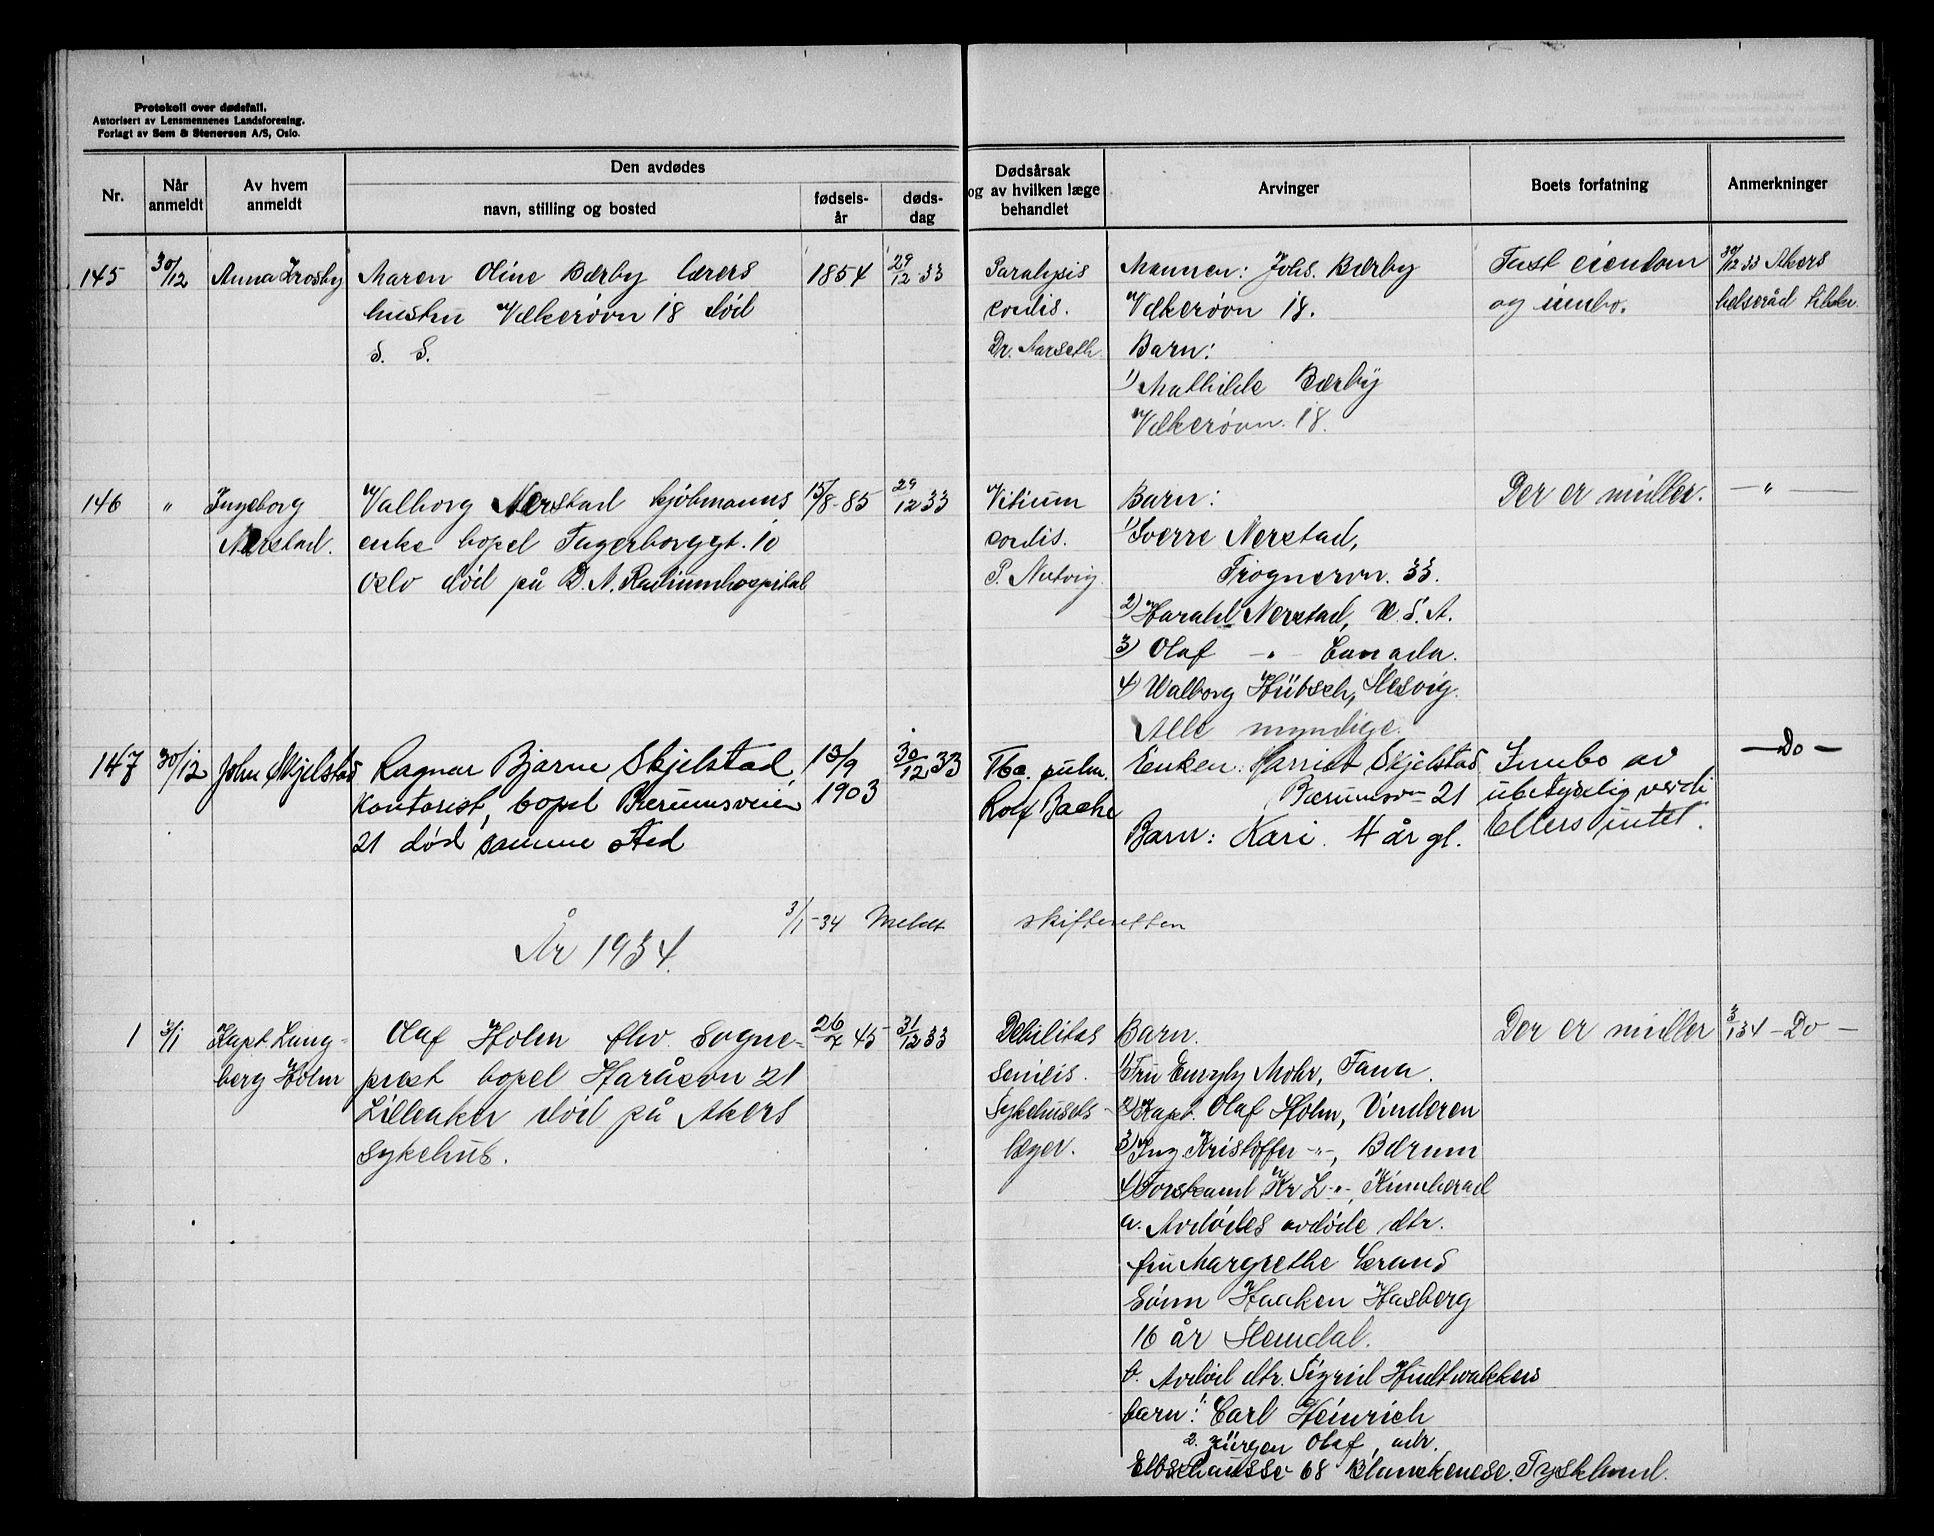 Protokoll over dødsfall.
Autorisert av Lensmennenes Landsforening.
Forlagt av Sem & Stenersen A/S, Oslo.
Nr.
Når anmeldt
Av hvem anmeldt
Den avdødes
navn, stilling og bosted
fødselsår
dødsdag
Dødsårsak og av hvilken læge behandlet
Arvinger
Boets forfatning
Anmerkninger
145
30/12
Anna Krosby
Maren Oline Bærby lærers
hustru Vækerøvn 18 død
s. S.
1854
29/12 33
Paralysis
cordis.
Dr. Aarseth
Mannen: Johs. Bærby
Vækerøvn 18.
Barn:
1) Mathilde Bærby
Vækerøvn. 18.
Fast eiendom
og innbo.
30/12 33 Akers
helseråd tilskr.
146
"
Ingeborg
Nerstad.
Valborg Nerstad kjøbmanns
enke bopel Fagerborggt. 10
Oslo død på D. N. Radiumhospital
15/8-85
29/12 33
Vitium
cordis.
P. Nutvig.
Barn:
1) Sverre Nerstad,
Frognervn. 33.
2) Harald Nerstad, U. S. A.
3) Olaf - " - Canada.
4) Walborg Hübsch, Slesvig.
Alle myndige.
Der er midler.
— " —
147
30/12
John Skjelstad
Ragnar Bjarne Skjelstad,
Kontorist, bopel Bærumsveien
21 død samme sted
13/9
1903
30/12 33
Tbc. pulm.
Rolf Bache
Enken: Harriet Skjelstad
Bærumsvn 21
Barn: Kari. 4 år gl.
Innbo av
ubetydelig verdi
Ellers intet.
— Do —
3/1-34 Meldt skifteretten
År 1934.
1
3/1
Kapt. Lung-
berg Holm
Olaf Holm fhv. Sogne-
prest bopel Haråsvn 21
Lilleaker død på Akers
sykehus.
26/7 45
31/12 33
Debilitas
senilis.
Sykehusets
læger.
Barn.
1) Fru Emzyly Mohr, Fana.
2) Kapt. Olaf Holm, Vinderen
3) Ing Kristoffer -"-, Bærum
4) Forstkand Kr L -"-, Kinnherad
a. Avdødes avdøde dtr.
fru Margrethe
Sønn Haaken Hasberg
16 år Slemdal.
b. Avdød dtr. Sigrid Hudtwalkers
barn: 1. Carl Heinrich
2. Jürgen Olaf, adr.
Elbschausse 68 Blanckenese. Tyskland.
Der er midler
3/1 34 — Do —